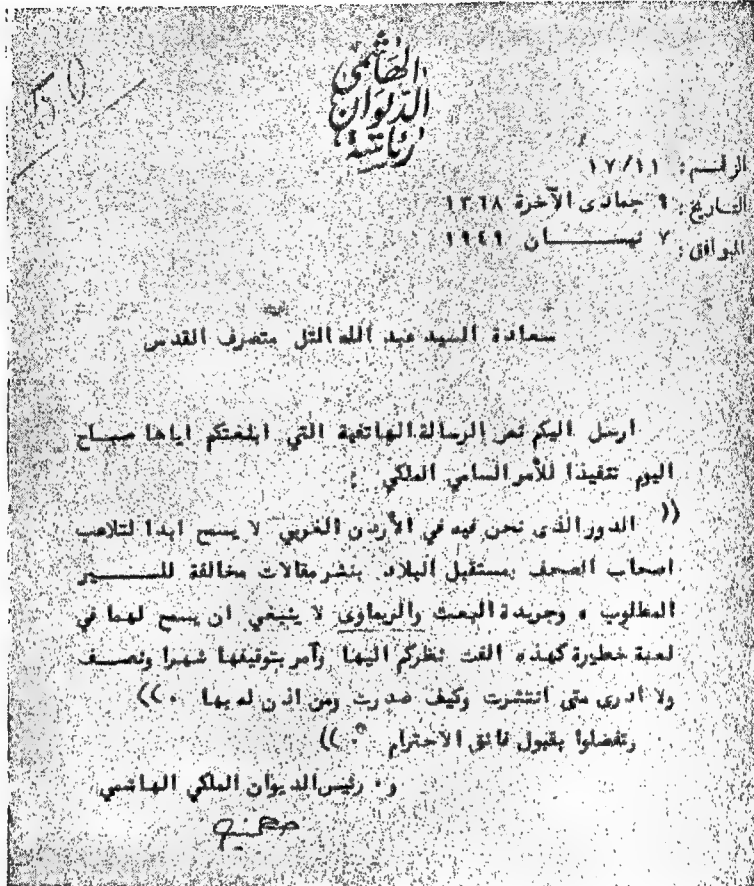 50
الهاشمي
الديوان
رئاسة
الرقم : ١٧/١١
التاريخ : ٩ جمادى الآخرة ١٣٦٨
الموافق : ٧ نيسان ١٩٤٩
سعادة السيد عبد الله التل متصرف القدس
ارسل اليكم نص الرسالة الهاتفية التي ابلغتكم اياها صباح
اليوم تنفيذا للأمر السامي الملكي :
(( الدور الذى نحن فيه في الأردن الغربي لا يسمح ابدا لتلاعب
اصحاب الصحف بمستقبل البلاد بنشر مقالات مخالفة للسير
المطلوب ، وجريدة البعث والريماوى لا ينبغي ان يسمح لهما في
لعبة خطيرة كهذه الفت نظركم اليها وآمر بتوقيفها شهرا ونصف
ولا ادرى متى انتشرت وكيف صدرت ومن اذن له بها . ))
وتفضلوا بقبول فائق الاحترام . ))
و. رئيس الديوان الملكي الهاشمي